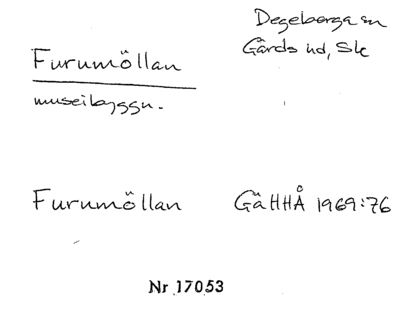 Degeberga sn
Gärds hd, Sk
Furumöllan
museibyggn.
Furumöllan GäHHÅ 1969:76
Nr 17053